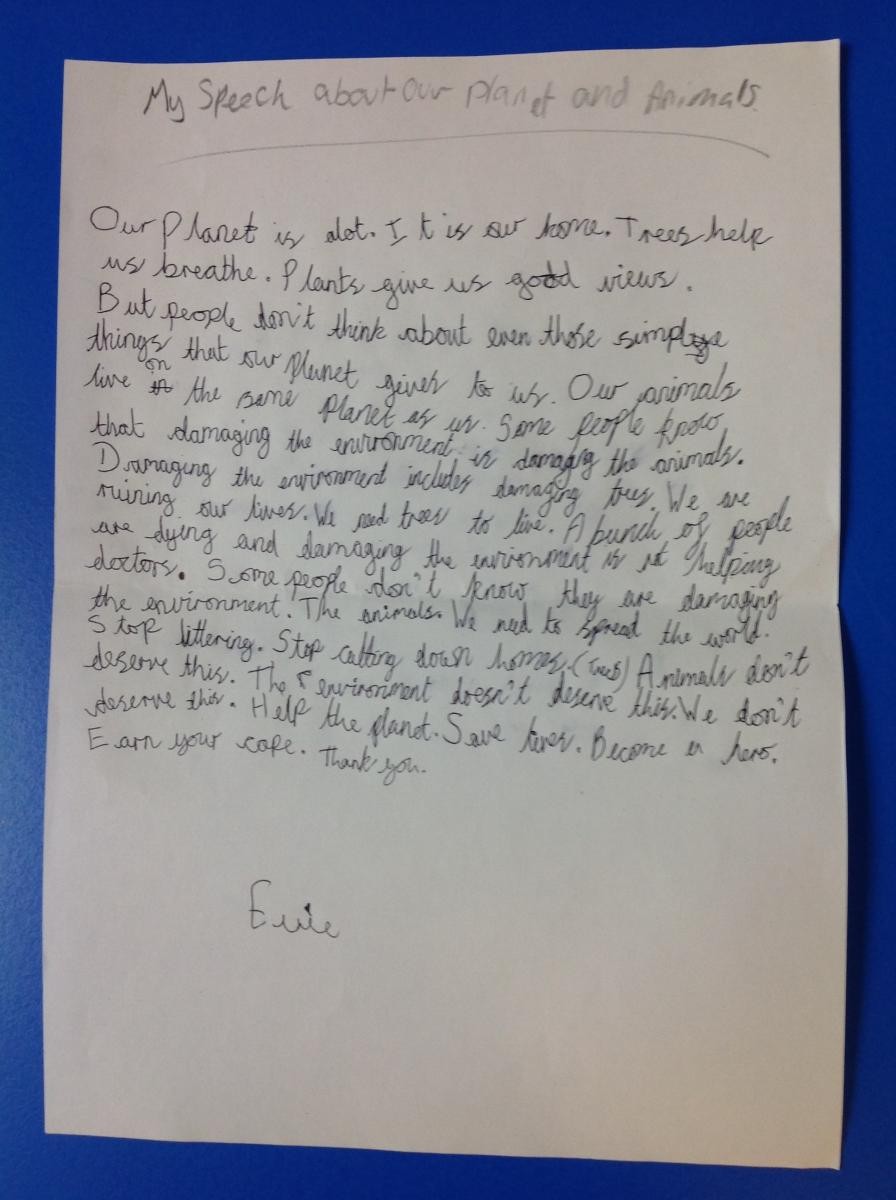 My Speech about Our Planet and Animals
Our Planet is alot. It is our home. Trees help
us breathe. Plants give us good views.
But people don't think about even those simple
things that our Planet gives to us. Our animals
live on the same Planet as us. Some people know
that damaging the environment is damaging the animals.
Damaging the environment includes damaging trees. We are
ruining our lives. We need trees to live. A bunch of people
are dying and damaging the environment is not helping
doctors. Some people don't know they are damaging
the environment. The animals. We need to spread the world.
Stop littering. Stop cutting down homes. (trees) Animals don't
deserve this. The environment doesn't deserve this. We don't
deserve this. Help the planet. Save lives. Become a hero.
Earn your cape. Thank you.
Evie